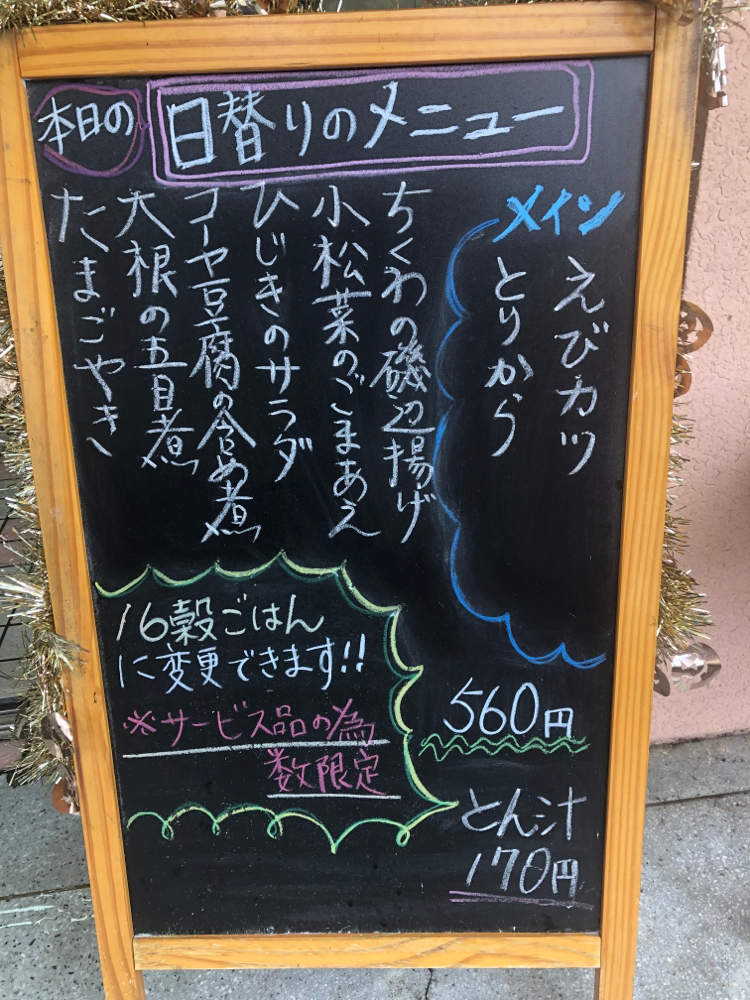 本日の
日替りのメニュー
メイン
えびカツ
とりから
ちくわの磯辺揚げ
小松菜のごまあえ
ひじきのサラダ
コーヤ豆腐の含め煮
大根の五目煮
たまごやき
16穀ごはん
に変更できます!!
※サービス品の為
数限定
560円
とん汁
170円